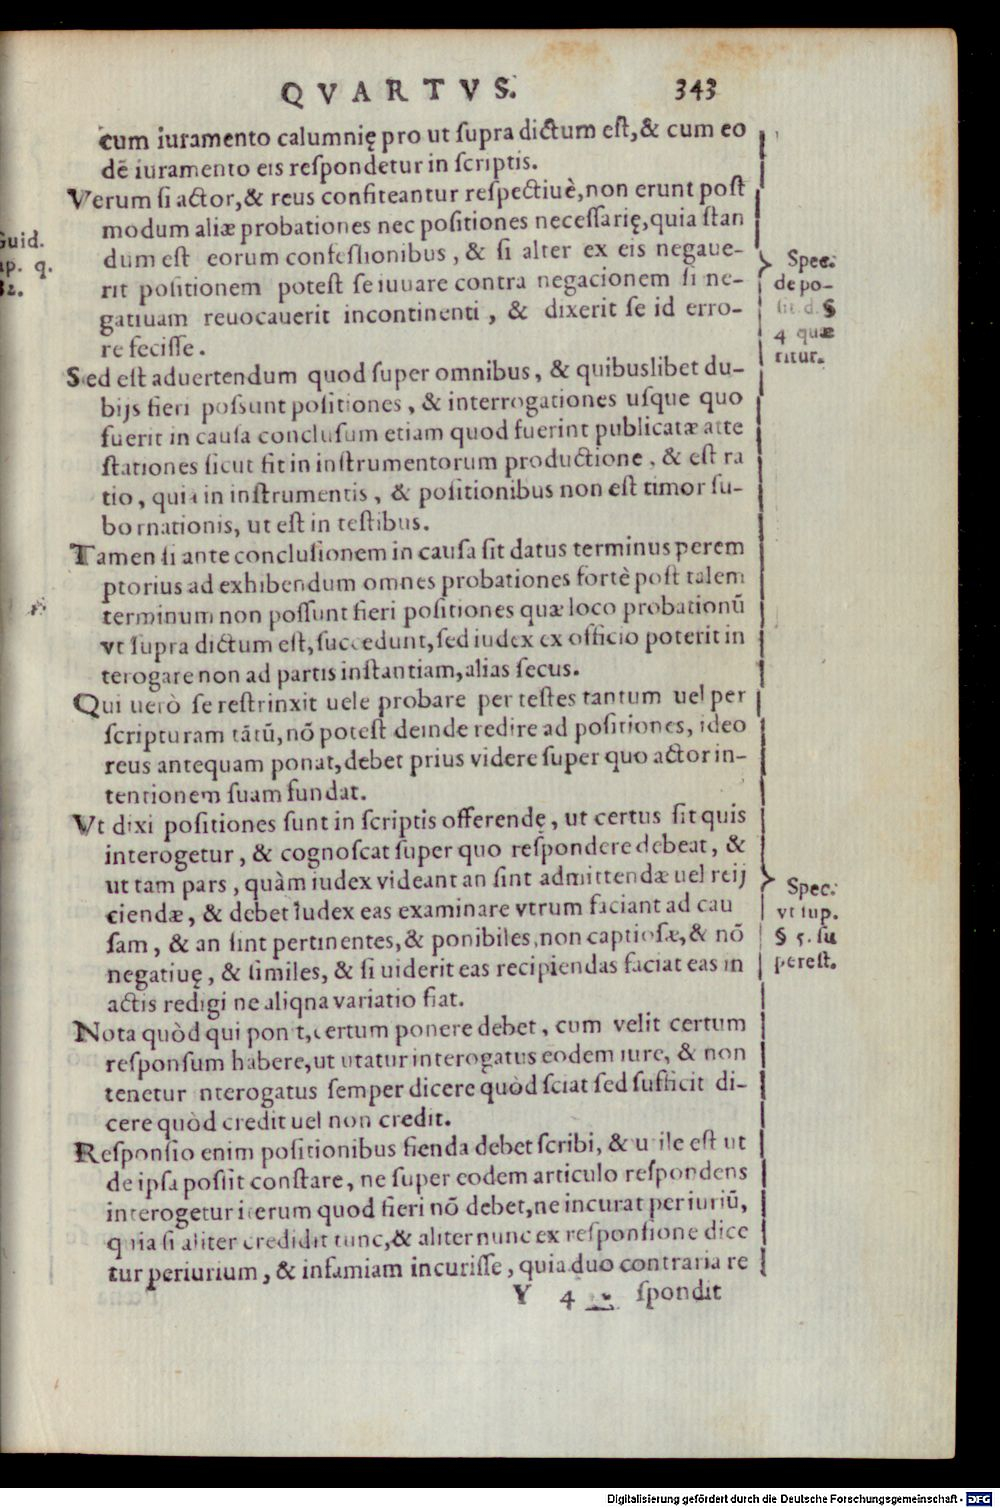 QVARTVS. 343
cum iuramento calumnię pro ut supra dictum est,& cum eo
dē iuramento eis respondetur in scriptis.
Verum si actor,& reus confiteantur respectiuè,non erunt post
modum aliæ probationes nec positiones necessarię,quia stan
dum est eorum confessionibus, & si alter ex eis negaue-
rit positionem potest se iuuare contra negacionem si ne-
gatiuam reuocauerit incontinenti, & dixerit se id erro-
re fecisse.
Sed est aduertendum quod super omnibus, & quibuslibet du-
bijs fieri possunt positiones, & interrogationes usque quo
fuerit in causa conclusum etiam quod fuerint publicatæ atte
stationes sicut fit in instrumentorum productione, & est ra
tio, quia in instrumentis, & positionibus non est timor su-
bornationis, ut est in testibus.
Tamen si ante conclusionem in causa sit datus terminus perem
ptorius ad exhibendum omnes probationes fortè post talem
terminum non possunt fieri positiones quæ loco probationū
vt supra dictum est, succedunt, sed iudex ex officio poterit in
terogare non ad partis instantiam,alias secus.
Qui uerò se restrinxit uele probare per testes tantum uel per
scripturam tātū, nō potest deinde redire ad positiones, ideo
reus antequam ponat,debet prius videre super quo actor in-
tentionem suam fundat.
Vt dixi positiones sunt in scriptis offerendę, ut certus sit quis
interogetur, & cognoscat super quo respondere debeat, &
ut tam pars, quàm iudex videant an sint admittendæ uel reij
ciendæ, & debet Iudex eas examinare vtrum faciant ad cau
sam, & an sint pertinentes,& ponibiles,non captiosæ,& nō
negatiuę, & similes, & si uiderit eas recipiendas faciat eas in
actis redigi ne aliqna variatio fiat.
Nota quòd qui pon t,certum ponere debet, cum velit certum
responsum habere,ut utatur interogatus eodem iure, & non
tenetur nterogatus semper dicere quòd sciat sed sufficit di-
cere quòd credit uel non credit.
Responsio enim positionibus fienda debet scribi, & u ile est ut
de ipsa possit constare, ne super eodem articulo respondens
interogetur iterum quod fieri nō debet,ne incurat periuriū,
quia si aliter credidit tunc,& aliter nunc ex responsione dice
tur periurium, & infamiam incurisse, quia duo contraria re
Y 4 spondit
Guid.
ap. q.
82.
Spec.
de po-
sit. d. §
4 quæ
ritur.
Spec.
vt sup.
§ 5. su
perest.
Digitalisierung gefördert durch die Deutsche Forschungsgemeinschaft - DFG